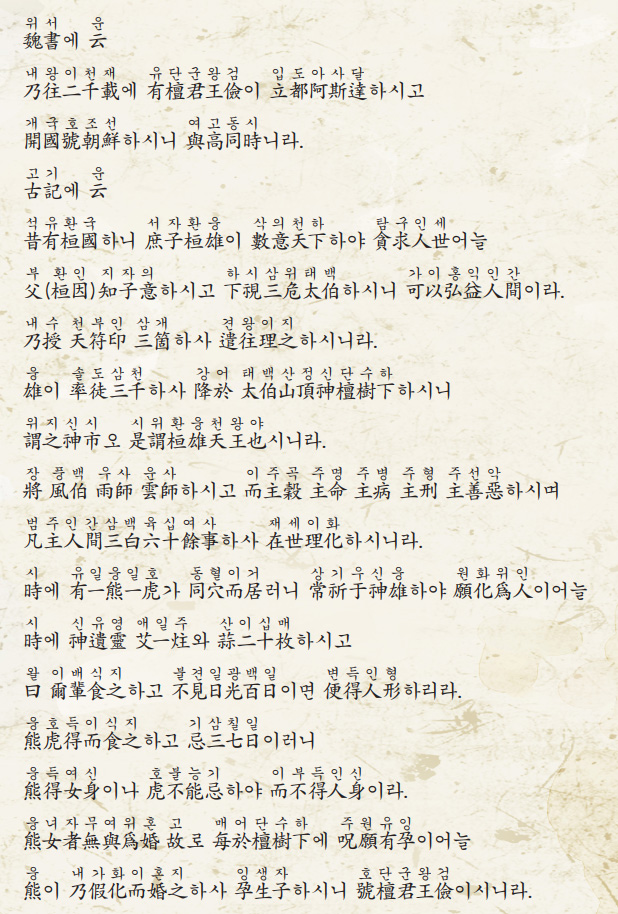 위서 운
魏書에 云
내왕이천재 유단군왕검 입도아사달
乃往二千載에 有檀君王儉이 立都阿斯達하시고
개국호조선 여고동시
開國號朝鮮하시니 與高同時니라.
고기 운
古記에 云
석유환국 서자환웅 삭의천하 탐구인세
昔有桓國하니 庶子桓雄이 數意天下하야 貪求人世어늘
부 환인 지자의 하시삼위태백 가이홍익인간
父(桓因)知子意하시고 下視三危太伯하시니 可以弘益人間이라.
내수 천부인 삼개 견왕이지
乃授 天符印 三箇하사 遣往理之하시니라.
웅 솔도삼천 강어 태백산정신단수하
雄이 率徒三千하사 降於 太伯山頂神檀樹下하시니
위지신시 시위환웅천왕야
謂之神市오 是謂桓雄天王也시니라.
장 풍백 우사 운사 이주곡 주명 주병 주형 주선악
將 風伯 雨師 雲師하시고 而主穀 主命 主病 主刑 主善惡하시며
범주인간삼백육십여사 재세이화
凡主人間三百六十餘事하사 在世理化하시니라.
시 유일웅일호 동혈이거 상기우신웅 원화위인
時에 有一熊一虎가 同穴而居러니 常祈于神雄하야 願化爲人이어늘
시 신유영 애일주 산이십매
時에 神遺靈 艾一炷와 蒜二十枚하시고
왈 이배식지 불견일광백일 변득인형
曰 爾輩食之하고 不見日光百日이면 便得人形하리라.
웅호득이식지 기삼칠일
熊虎得而食之하고 忌三七日이러니
웅득여신 호불능기 이부득인신
熊得女身이나 虎不能忌하야 而不得人身이라.
웅녀자무여위혼 고 매어단수하 주원유잉
熊女者無與爲婚 故로 每於檀樹下에 呪願有孕이어늘
웅 내가화이혼지 잉생자 호단군왕검
熊이 乃假化而婚之하사 孕生子하시니 號檀君王儉이시니라.